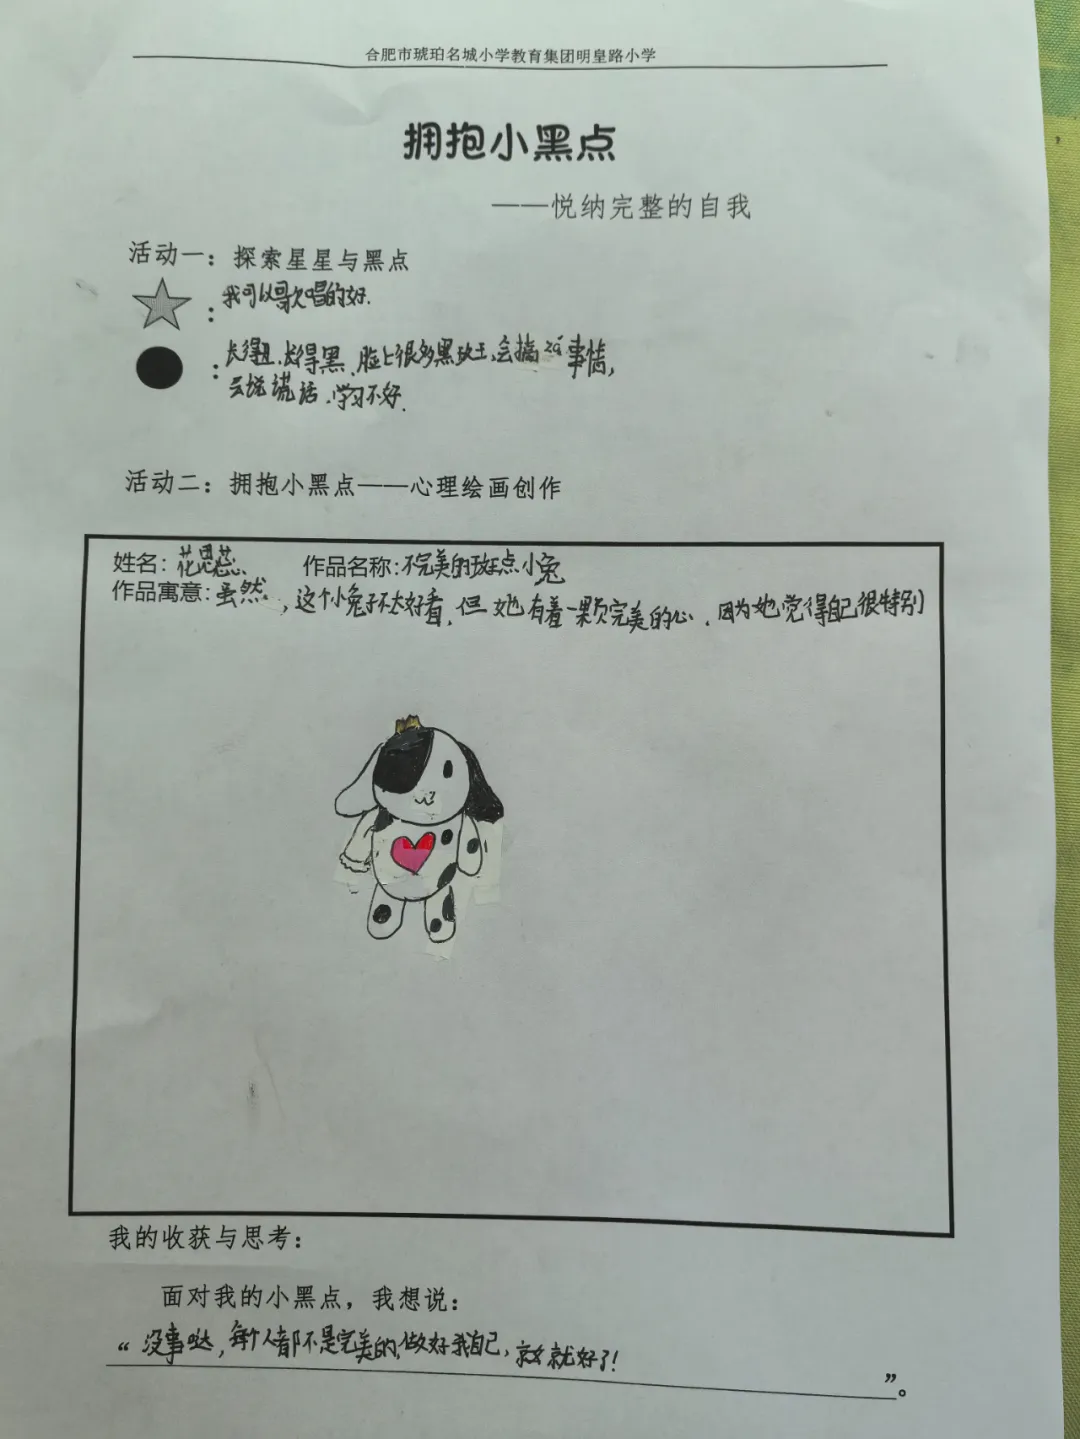 合肥市琥珀名城小学教育集团明皇路小学
拥抱小黑点
——悦纳完整的自我
活动一：探索星星与黑点
：我可以歌唱的好.
：长得丑、长得黑、脸上很多黑斑、会搞 事情,
会说谎话、学习不好.
活动二：拥抱小黑点——心理绘画创作
姓名：花思蕊 作品名称：不完美的斑点小兔
作品寓意：虽然，这个小兔子不太好看，但她有着一颗完美的心，因为她觉得自己很特别
我的收获与思考：
面对我的小黑点，我想说：
“没事哒，每个人都不是完美的,做好我自己，就好了!
”。